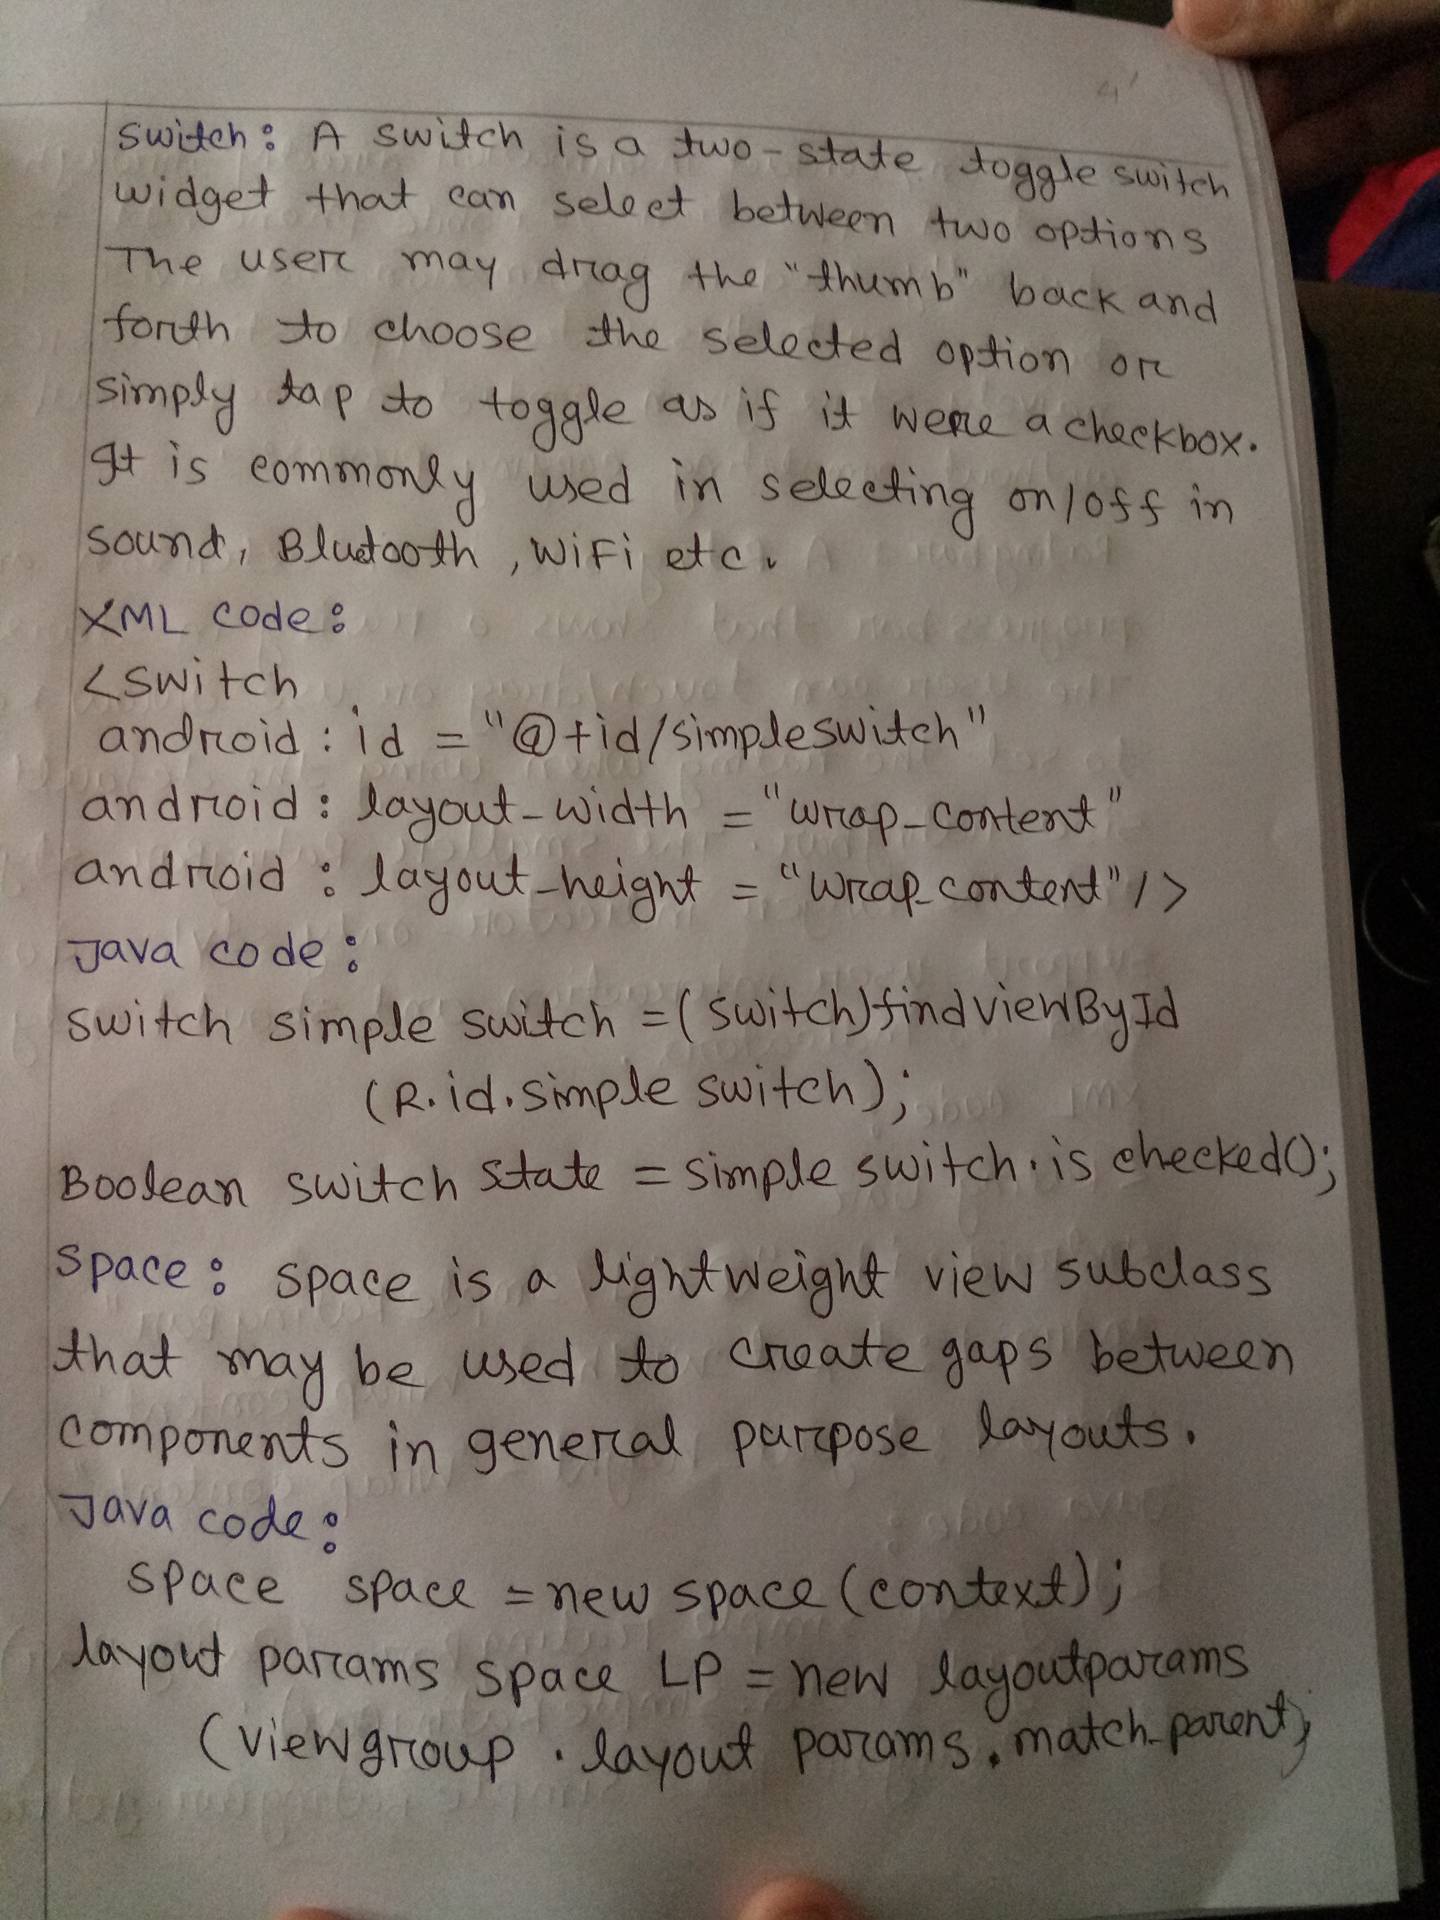 Switch: A switch is a two-state toggle switch
widget that can select between two options
The user may drag the "thumb" back and
forth to choose the selected option or
simply tap to toggle as if it were a checkbox.
It is commonly used in selecting on/off in
sound, Bluetooth, WiFi etc.
XML code:
<switch
android: id = "@+id/simpleswitch"
android: layout-width = "wrap-content"
android: layout-height = "wrap-content"/>
Java code:
switch simple switch = (switch)findviewById
(R.id.simple switch);
Boolean switch state = simple switch.is checked();
Space: space is a lightweight view subclass
that may be used to create gaps between
components in general purpose layouts.
Java code:
space space = new space (context);
layout params space LP = new layoutparams
(viewgroup . layout params. match-parent,